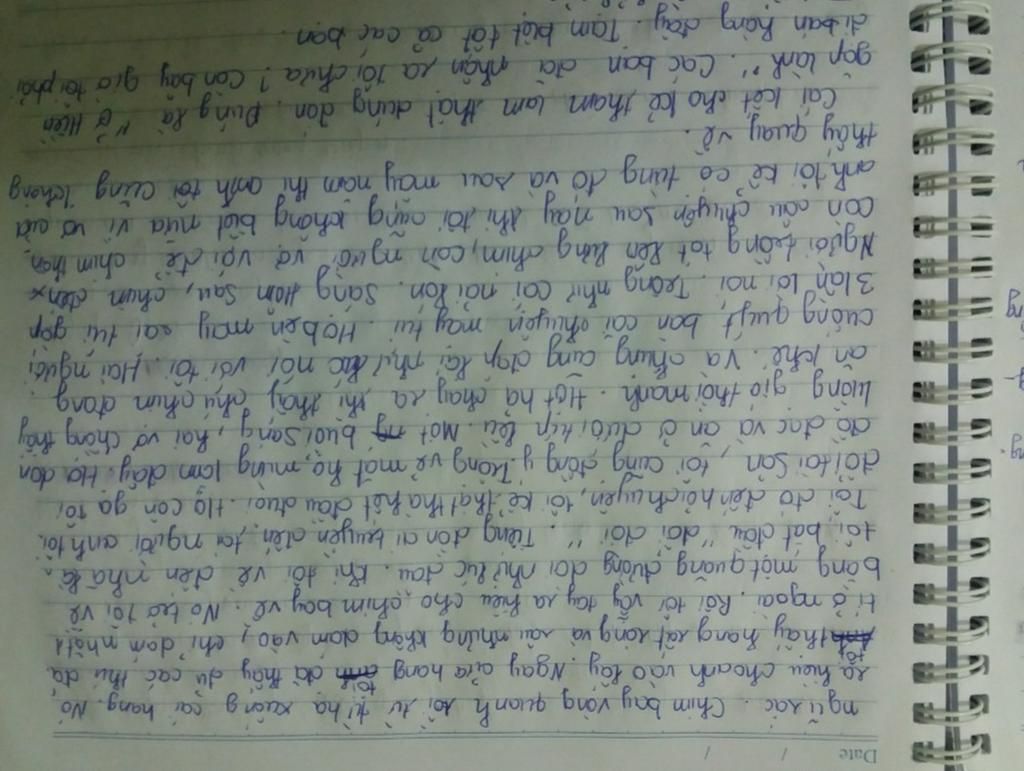 Date / /
ngũ sắc. Chim bay vòng quanh rồi từ từ hạ xuống cái hang. Nó
ra hiệu cho anh vào lấy. Ngay cửa hang tôi đã thấy đủ các thứ đá
tôi thấy hang rất rộng và sâu nhưng không dám vào, chỉ dám nhặt ít
tí ở ngoài. Rồi tôi vẫy tay ra hiệu cho chim bay về. Nó trả tôi về
bằng một quãng đường dài như lúc đầu. Khi tôi về đến nhà là
tôi bắt đầu "đổi đời". Tiếng đồn ai truyền đến tai người anh tôi.
Tôi đó đến hỏi chuyện, tôi kể thật thà hết đầu đuôi. Họ còn gạ tôi
đổi tài sản, tôi cũng đồng ý. Trông vẻ mặt họ mừng lắm đấy. Họ dọn
đồ đạc và ăn ở dưới túp lều. Một buổi sáng, hai vợ chồng thấy
luồng gió thổi mạnh. Hớt hả chạy ra thì thấy chú chim đang
ăn khế. Và chúng cũng đáp lại như nói với tôi. Hai người
cuống quýt bàn cãi chuyện may túi. Họ bèn may ra túi gấp
3 lần lời nói. Trông như cái nồi lớn. Sáng Hôm sau, chim đến
Người chồng tót lên lưng chim, còn người vợ vái chim thần
Còn câu chuyện sau này thì tôi cũng không biết nữa vì vợ của
anh tôi kể có từng đó và sau mấy năm thì anh tôi cũng không
thấy quay về.
Cái kết cho kẻ tham lam thật đúng đắn. Đúng là "Ở Hiền
gặp lành". Các bạn đã nhận ra tôi chưa? Còn bây giờ tôi phải
đi bán hàng đây. Tạm biệt tất cả các bạn.